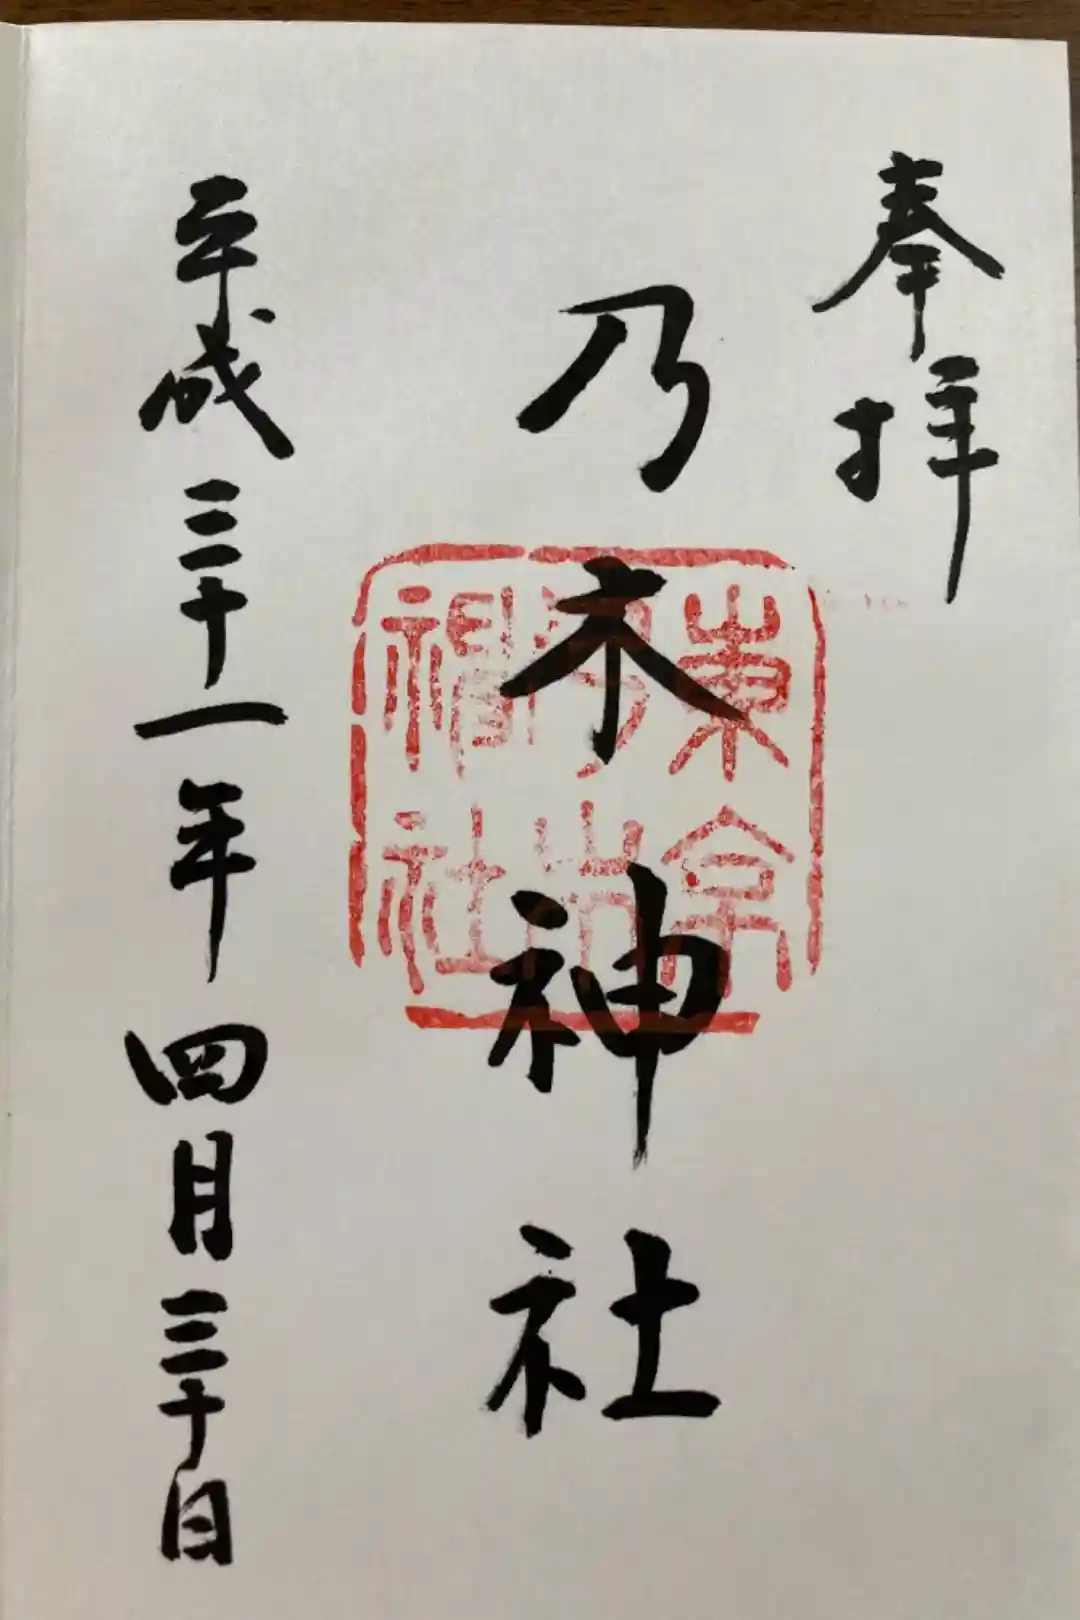 奉拝
乃木神社
平成三十一年四月三十日
東京
乃木
神社